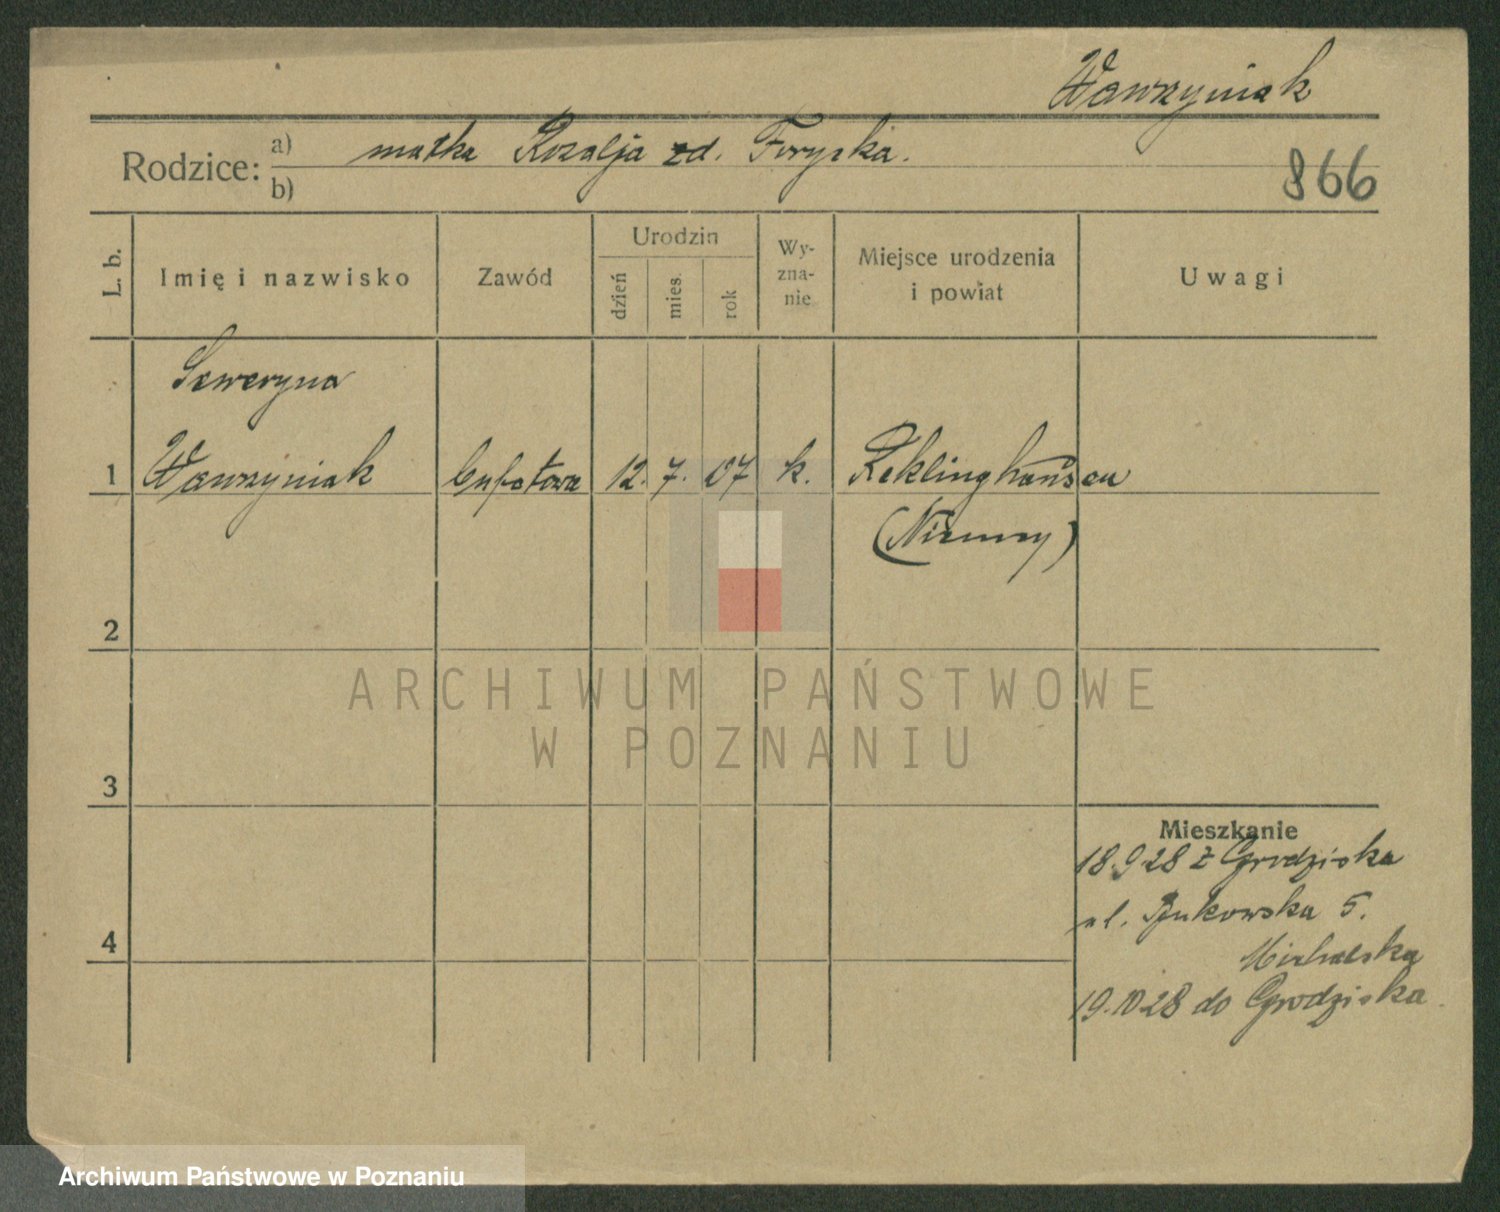 Wawrzyniak
Rodzice: a) matka Rozalja zd. Foryska.
b)
866
L. b.
Imię i nazwisko
Zawód
Urodzin
dzień
mies.
rok
Wy-
zna-
nie
Miejsce urodzenia
i powiat
Uwagi
Seweryna
1 Wawrzyniak bufetowa 12. 7. 07 k. Reklinghausen
(Niemcy)
2
3
4
Mieszkanie
18.9.28 z Grodziska
ul. Bukowska 5.
Michalska
19.10.28 do Grodziska.
ARCHIWUM PAŃSTWOWE
W POZNANIU
Archiwum Państwowe w Poznaniu